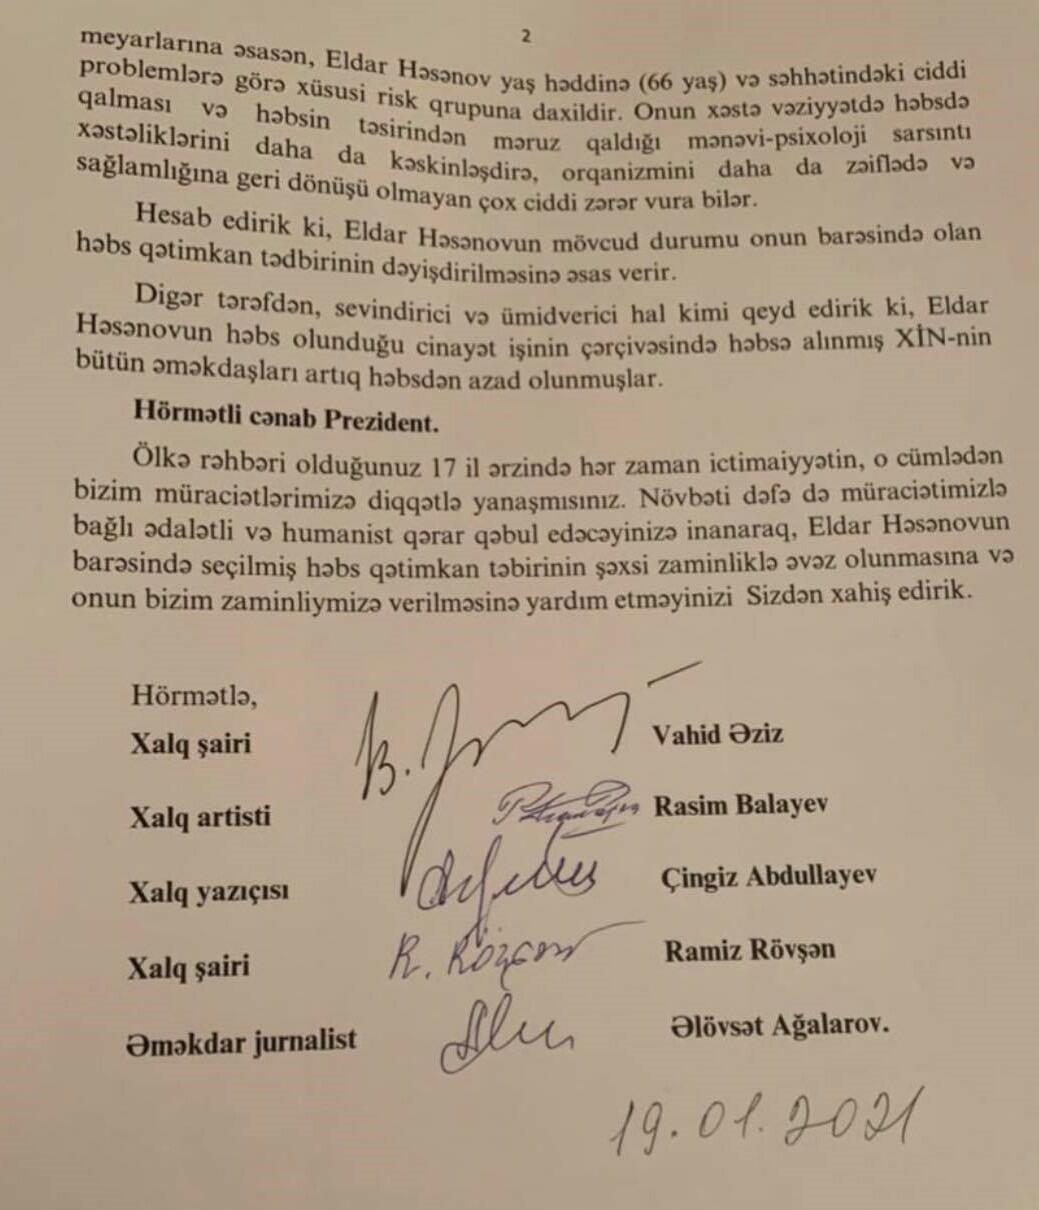 2
meyarlarına əsasən, Eldar Həsənov yaş həddinə (66 yaş) və səhhətindəki ciddi
problemlərə görə xüsusi risk qrupuna daxildir. Onun xəstə vəziyyətdə həbsdə
qalması və həbsin təsirindən məruz qaldığı mənəvi-psixoloji sarsıntı
xəstəliklərini daha da kəskinləşdirə, orqanizmini daha da zəiflədə və
sağlamlığına geri dönüşü olmayan çox ciddi zərər vura bilər.
Hesab edirik ki, Eldar Həsənovun mövcud durumu onun barəsində olan
həbs qətimkan tədbirinin dəyişdirilməsinə əsas verir.
Digər tərəfdən, sevindirici və ümidverici hal kimi qeyd edirik ki, Eldar
Həsənovun həbs olunduğu cinayət işinin çərçivəsində həbsə alınmış XİN-nin
bütün əməkdaşları artıq həbsdən azad olunmuşlar.
Hörmətli cənab Prezident.
Ölkə rəhbəri olduğunuz 17 il ərzində hər zaman ictimaiyyətin, o cümlədən
bizim müraciətlərimizə diqqətlə yanaşmısınız. Növbəti dəfə də müraciətimizlə
bağlı ədalətli və humanist qərar qəbul edəcəyinizə inanaraq, Eldar Həsənovun
barəsində seçilmiş həbs qətimkan təbirinin şəxsi zaminliklə əvəz olunmasına və
onun bizim zaminliymizə verilməsinə yardım etməyinizi Sizdən xahiş edirik.
Hörmətlə,
Xalq şairi Vahid Əziz
Xalq artisti Rasim Balayev
Xalq yazıçısı Çingiz Abdullayev
Xalq şairi Ramiz Rövşən
Əməkdar jurnalist Əlövsət Ağalarov.
19.01.2021